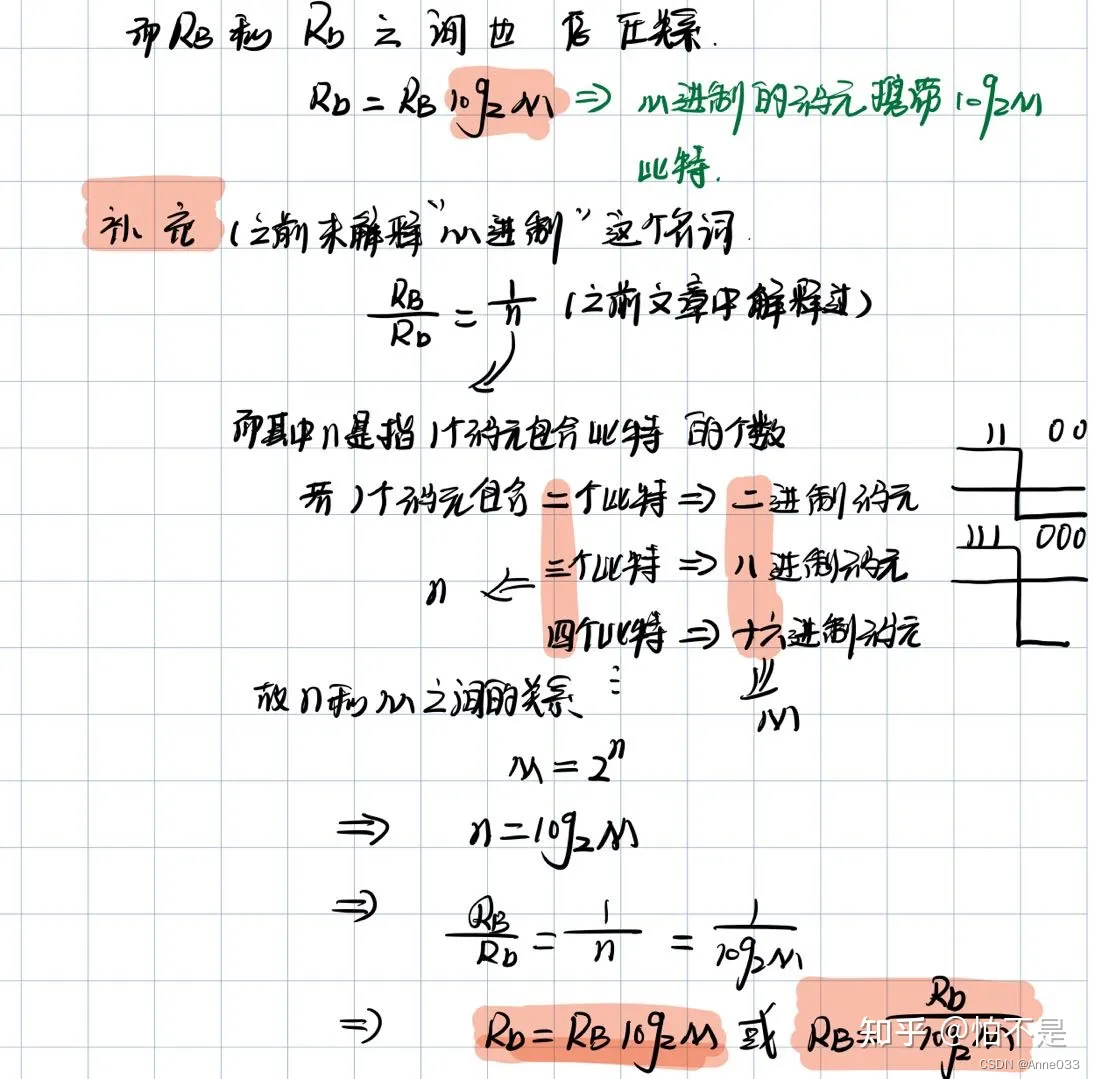 而RB和 Rb 之间也 存在关系.
Rb = RB log₂M ⇒ M进制的码元携带 log₂M
比特.
补充 (之前未解释“M进制”这个名词.
RB/Rb = 1/n (之前文章中解释过)
而其中n是指1个码元包含比特 的个数
若1个码元包含二个比特 ⇒ 二进制码元
11 00
n ⇐ 三个比特 ⇒ 八进制码元
111 000
四个比特 ⇒ 十六进制码元
故n和M之间的关系 ⋮ M
M = 2ⁿ
⇒ n = log₂M
⇒ RB/Rb = 1/n = 1/log₂M
⇒ Rb = RB log₂M 或 RB = Rb/log₂M
知乎 @怕不是
CSDN @Anne033